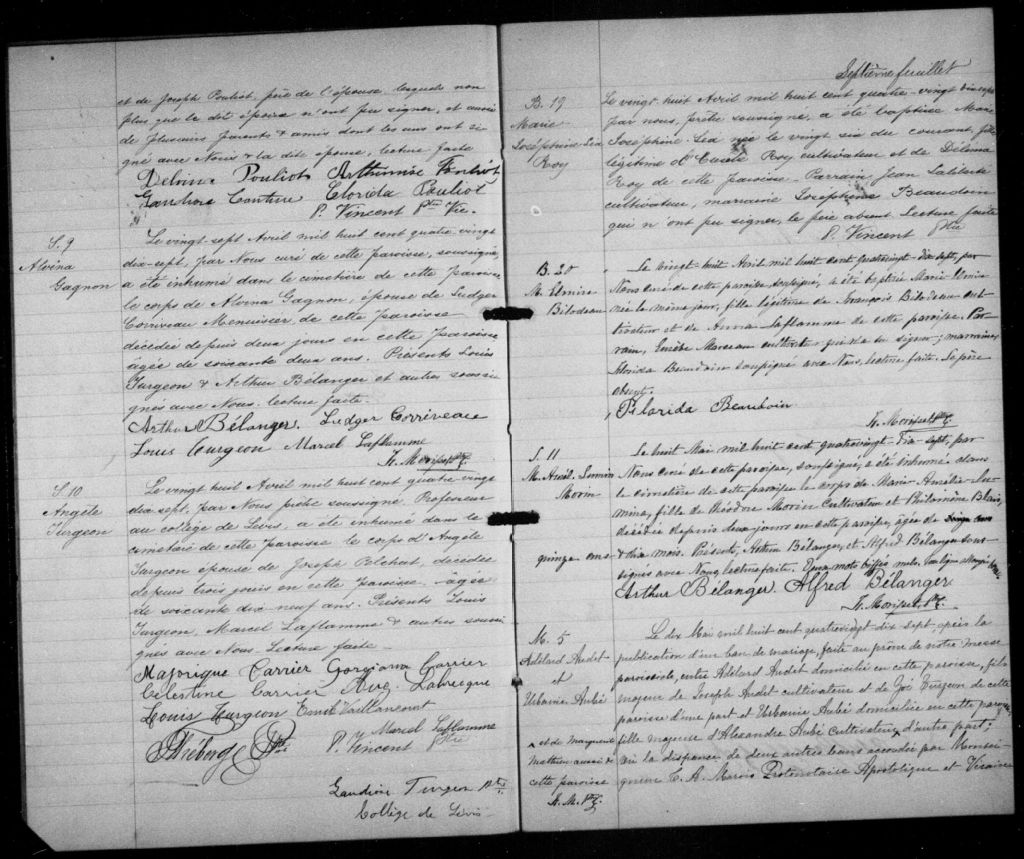 et de Joseph Pouliot, père de l'épouse lesquels non
plus que le dit époux n'ont pu signer, et aussi
de plusieurs parents & amis dont les uns ont si-
gné avec Nous & la dite épouse, lecture faite
Pouliot Arthémise Pouliot
Couture Clorida Pouliot
P. Vincent Ptre Vic.
S. 9
Alvina
Gagnon
Le vingt-sept Avril mil huit cent quatre-vingt
dix-sept, par Nous curé de cette paroisse, soussigné,
a été inhumé dans le cimetière de cette paroisse
le corps de Alvina Gagnon, épouse de Ludger
Corriveau Menuisier de cette paroisse
décédée depuis deux jours en cette paroisse
âgée de soixante deux ans. Présents Louis
Turgeon & Arthur Bélanger et autres soussi-
gnés avec Nous. lecture faite.
Arthur Bélanger Ludger Corriveau
Louis Turgeon Marcel Laflamme
Morisset Ptre
S. 10
Angèle
Turgeon
Le vingt huit Avril mil huit cent quatre vingt
dix sept, par Nous prêtre soussigné Professeur
au collège de Lévis, a été inhumé dans le
cimetière de cette paroisse le corps d'Angèle
Turgeon épouse de Joseph Pelchat, décédée
depuis trois jours en cette Paroisse agée
de soixante dix neuf ans. Présents Louis
Turgeon, Marcel Laflamme & autres soussi
gnés avec Nous. Lecture faite
Majorique Carrier Georgiana Carrier
Célestine Carrier Aug. Labrecque
Louis Turgeon Emile Vaillancourt
Marcel Laflamme
P. Vincent Ptre
Turgeon Ptre
Collège de Lévis
Septième feuillet
B. 19
Marie
Joséphine-Léa
Roy
Le vingt-huit Avril mil huit cent quatre-vingt dix sept
par nous, prêtre soussigné, a été baptisée Marie
Joséphine Léa née le vingt six du courant, fille
légitime d' Roy cultivateur et de Délima
Roy de cette paroisse. Parrain, Jean
cultivateur, marraine Joséphine Beaudoin
qui n'ont pu signer, le père absent Lecture faite
P. Vincent Ptre
B. 20
M. Elmire
Bilodeau
Le vingt-huit Avril mil huit cent quatrevingt-dix sept, par
Nous curé de cette paroisse soussigné, a été baptisé Marie Elmire
née le même jour, fille légitime de François Bilodeau cul-
tivateur et de Anna Laflamme de cette paroisse. Par-
rain, Marceau cultivateur qui n'a su signer; marraine,
Florida Beaudoin soussigné avec Nous, lecture faite. Le père
absent.
Florida Beaudoin
Morisset Ptre
S. 11
M. Amél. Lumina
Morin
Le huit Mai mil huit cent quatrevingt dix-sept, par
Nous curé de cette paroisse, soussigné, a été inhumé dans
le cimetière de cette paroisse le corps de Marie Amélie Lu-
mina, fille de Théodore Morin Cultivateur et Philomène Blais,
décédée depuis deux jours en cette paroisse, âgée de
quinze ans & dix mois. Présents, Arthur Bélanger, et Alfred Bélanger sous-
signés avec Nous lecture faite. Deux mots biffés nuls.
Arthur Bélanger Alfred Bélanger
Morisset, Ptre
M. 5
Adélard Audet
et
Urbanie Aubé
Le dix Mai mil huit cent quatrevingt dix sept, après la
publication d'un ban de mariage, faite au prône de notre messe
paroissiale, entre Adélard Audet domicilié en cette paroisse, fils
majeur de Joseph Audet cultivateur et de Zoé Turgeon de cette
paroisse d'une part et Urbanie Aubé domiciliée en cette paroisse
fille majeure d'Alexandre Aubé Cultivateur, d'autre part;
^ et de Marguerite
Mathieu aussi de
cette paroisse
Ptre
vu la dispense de deux autres bans accordée par Monsei-
gneur C. A. Marois Protonotaire Apostolique et Vicaire